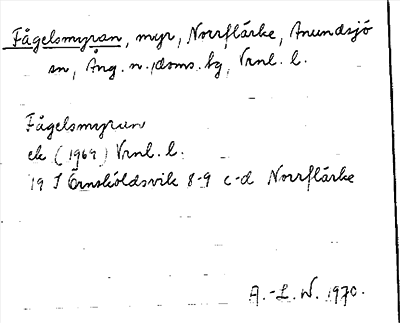 Fågelsmyran, myr, Norrflärke, Anundsjö
sn, Ång. n. doms. bg, Vrnl. l.
Fågelsmyran
ek (1969) Vrnl. l.
19 J Örnsköldsvik 8-9 c-d Norrflärke
A.-L. W. 1970.